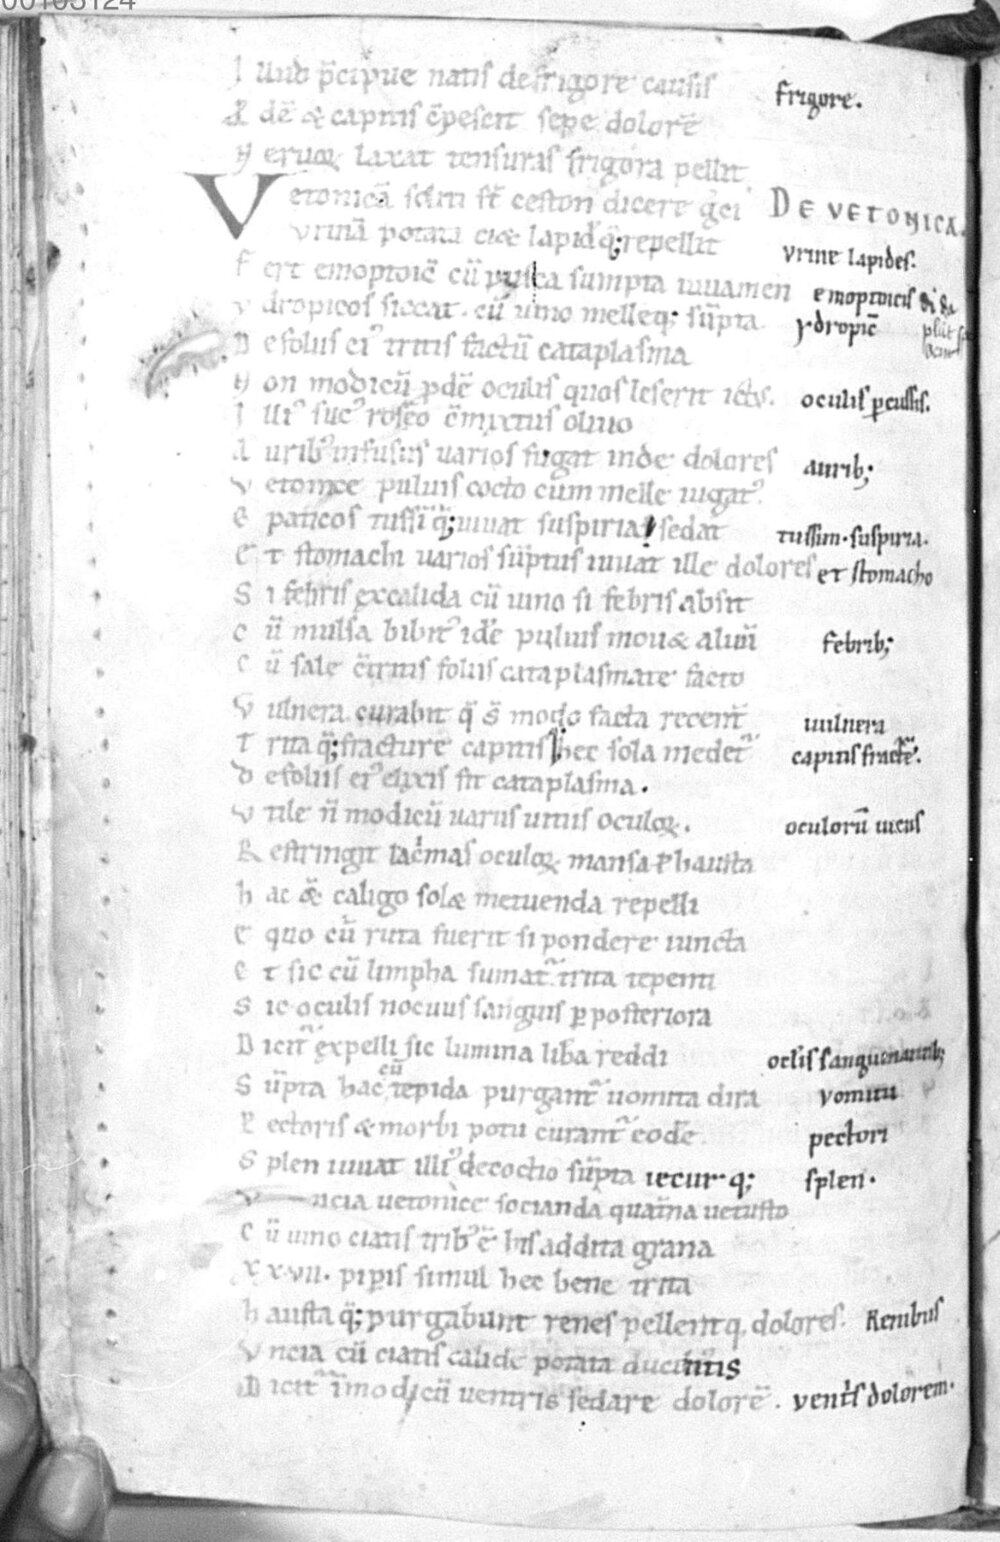 00103124
I llud p̄cipue natis de frigore causis
frigore.
P dē & capitis c̄pescit sepe dolorē
N eruoꝝ laxat tensuras frigora pellit
V etonicā ceston dicere gͥci
DE VETONICA.
Vrinā potata ciæ lapid q̄; repellit
Vrine lapides.
F ert emoptoicē cū sumpta iuuamen
emoptoicis
y dropicos siccat. cū uino melleq; sūpta
ydropic̄
D e foliis eiꝰ tritis factū cataplasma
N on modicū ꝓdē oculis quos leserit ictꝰ.
oculis ꝑcussis.
I lliꝰ sucꝰ roseo c̄mixtus oliuo
A uribꝰ infusus uarios fugat inde dolores
aurib;
V etonice puluis cocto cum melle iugatꝰ
E paticos tussi q̄; iuuat suspiria sedat
tussim. suspiria.
E t stomachi uarios sūptus iuuat ille dolores
et stomacho
S i febris excalida cū uino si febris absit
C ū mulsa bibitꝰ idē puluis mou& aluū
febrib;
C ū sale c̄tritis foliis cataplasmate facto
V ulnera curabit q̄ s̄ modo facta recent̄
uulnera
T rita q̄; fracture capitis hec sola medet᷑
capitis fractē.
D e foliis eiꝰ elixis sit cataplasma.
V tile n̄ modicū uariis uitiis oculoꝝ.
oculorū uiciis
R estringit lac̄mas oculoꝝ mansa ł hausta
h ac &̄ caligo solæ metuenda repelli
E quo cū ruta fuerit si pondere iuncta
E t sic cū limpha sumat᷑ trita tepenti
S ic oculis nocuus sanguis ꝑ posteriora
D icit᷑ expelli sic lumina libͣa reddi
oclis sanguinantib;
S ūpta hac cū tepida purgant᷑ uomita dira
vomitu
P ectoris & morbi potu curant᷑ eodē
pectori
S plen iuuat illiꝰ decoctio sūpta iecur q;
splen.
V ncia uetonice socianda quat̄na uetusto
C ū uino ciatis tribꝰ ē his addita grana
XXVII. pipis simul hec bene trita
h austa q̄; purgabunt renes pellentq, dolores.
Renibus
V ncia cū ciatis calide potata
D icit᷑ īmodicū uentris sedare dolorē.
ventͥs dolorem.